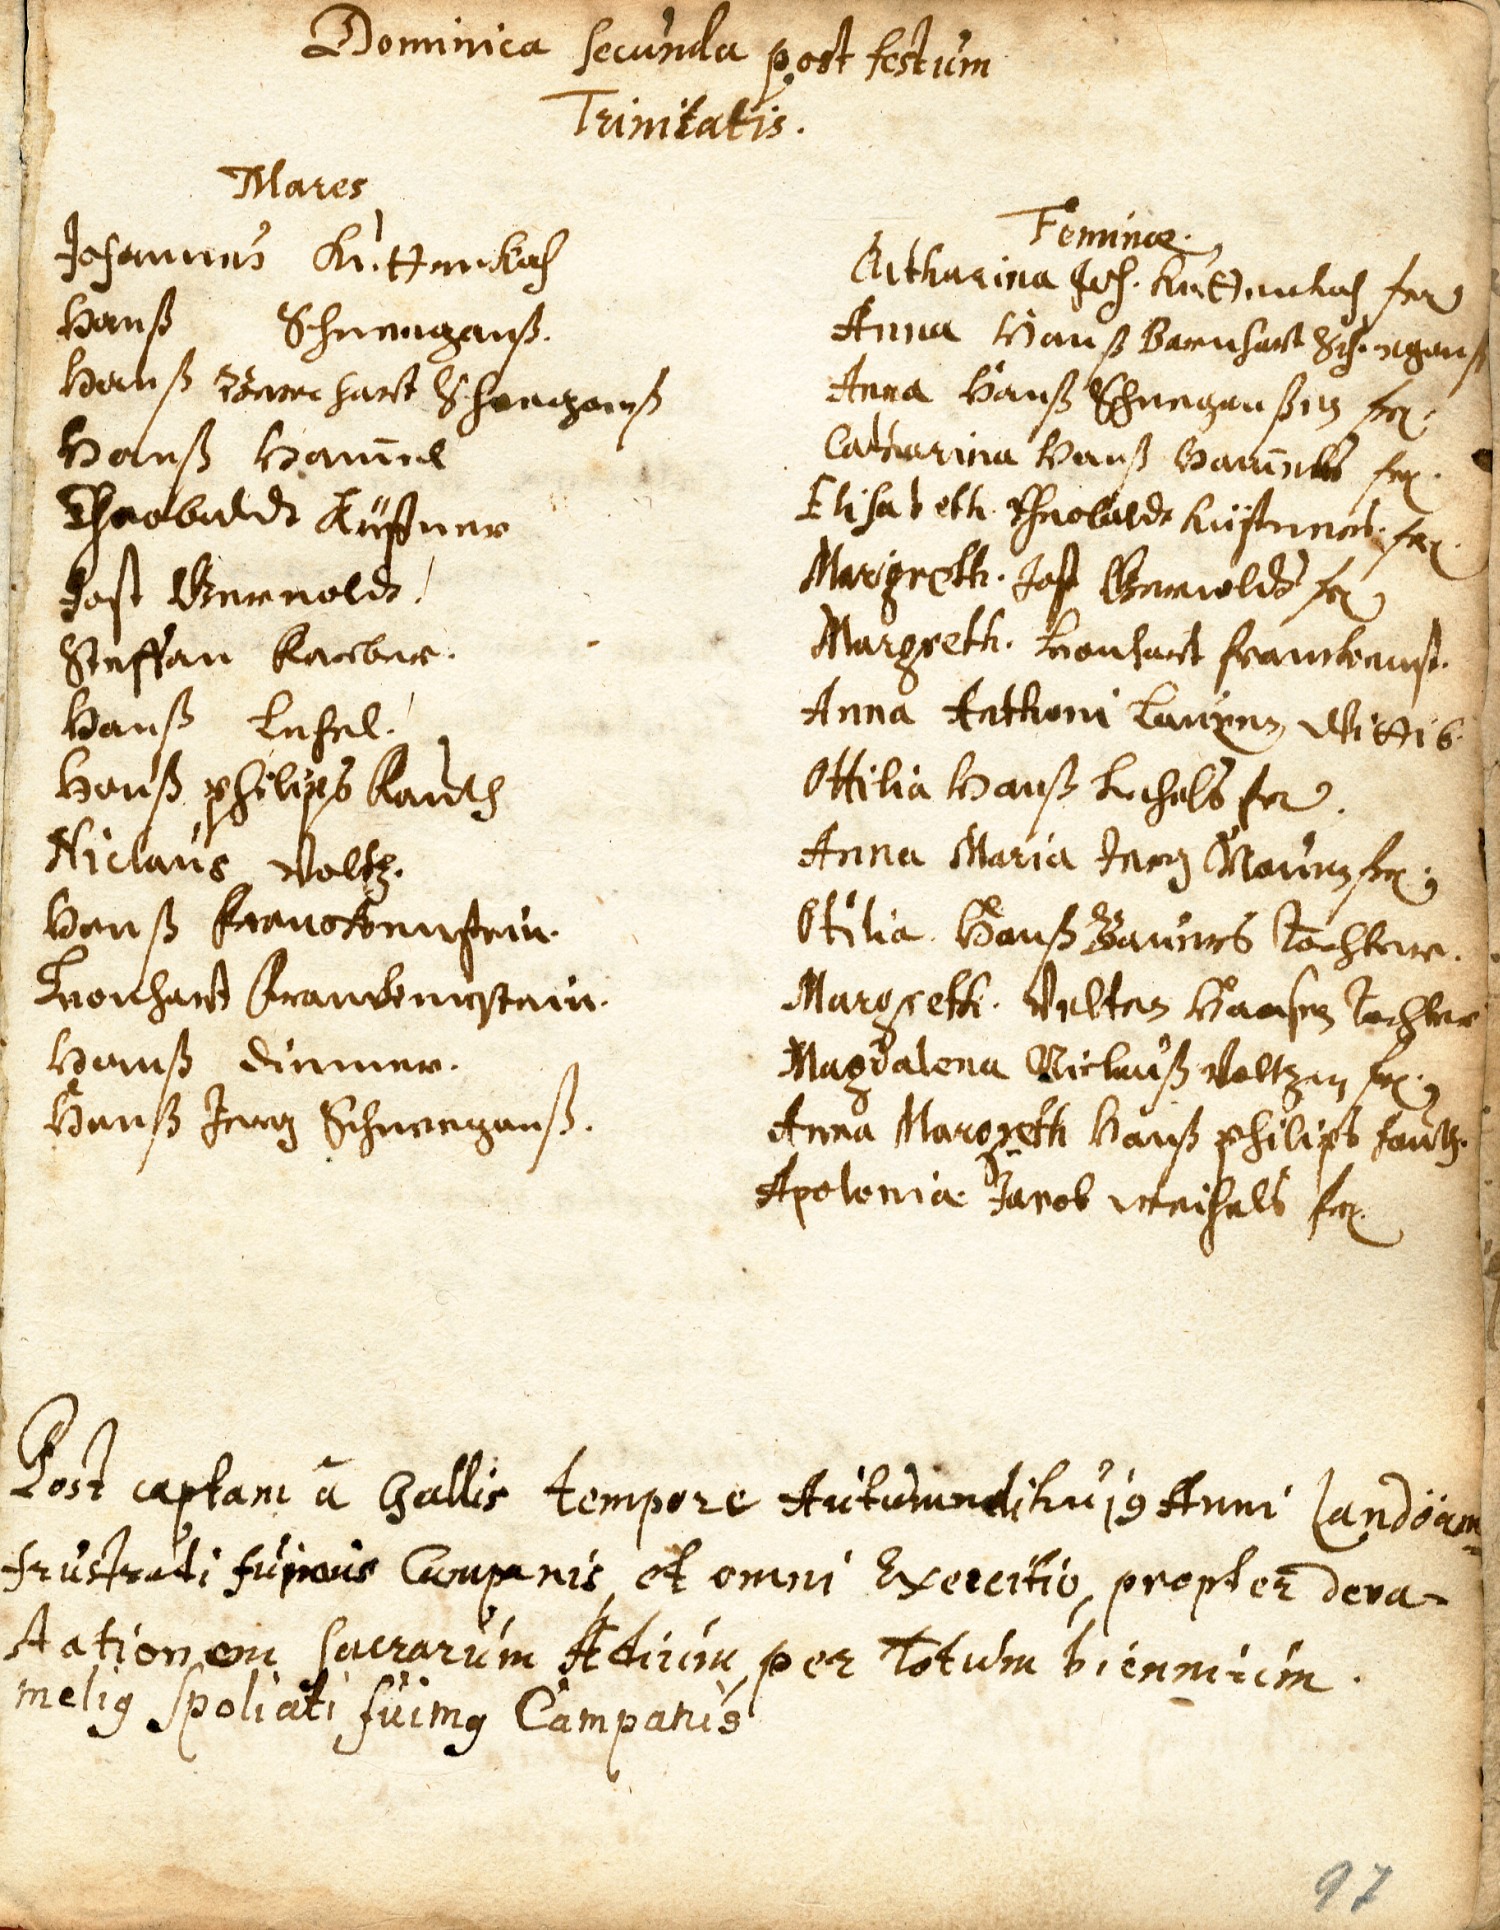 Dominica secunda post festum
Trinitatis.
Mares
Johannes Kuttenkoch
Hanß Schneeganß.
Hanß Bernhart Schneeganß
Hanß Ham̅el
Theobaldt Küstner
Jost Gernoldt.
Steffan Kerber.
Hanß Lechel.
Hanß Philips Kauth
Niclaus Voltz.
Hanß Franckenstein.
Leonhart Franckenstein.
Hanß Dinner.
Hanß Jerg Schneeganß.
Feminæ.
Catharina Joh. Kuttenkoch fr.
Anna Hanß Bernhart Schneganß
Anna Hanß Schneganßen fr.
Catharina Hanß Ham̅els fr.
Elisabeth. Theobaldt Küstners. fr.
Margreth. Jost Gernoldts fr.
Margreth. Leonhart Franckenst.
Anna Anthoni Lauren Wittib.
Ottilia Hanß Lechels fr.
Anna Maria Jerg fr.
Otilia. Hanß Baurs Tochter.
Margreth. Velten Haasen Tochter
Magdalena Niclauß Voltzen fr.
Anna Margreth Hanß Philips Kauth.
Apolonia Jacob fr.
Post captam â Gallis tempore Autumnali huj9 Anni Landoam
frustrati fuimus Campanis, et omni Exercitio, propter deva-
stationem sacrarum Ædium, per Totum biennium.
meli9 spoliati fuim9 Campanis
97